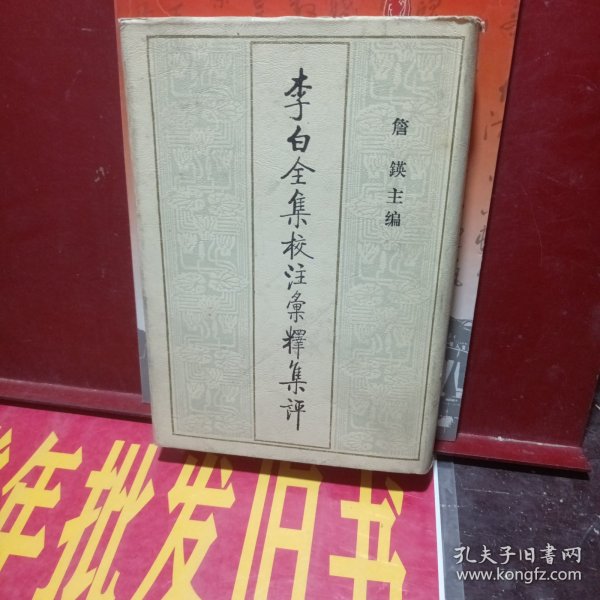 李白全集校注彙釋集評
詹鍈主编
年批发旧书
孔夫子旧书网
www.kongfz.com